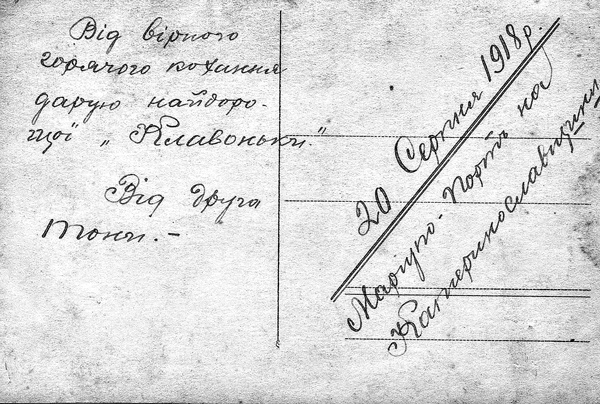 Від вірного
горячого кохання
дарую найдоро-
щої „Клавоньки."
Від друга
Тоні.-
20 Серпня 1918 р.
Маріупо-Портъ на
Катеринославщині